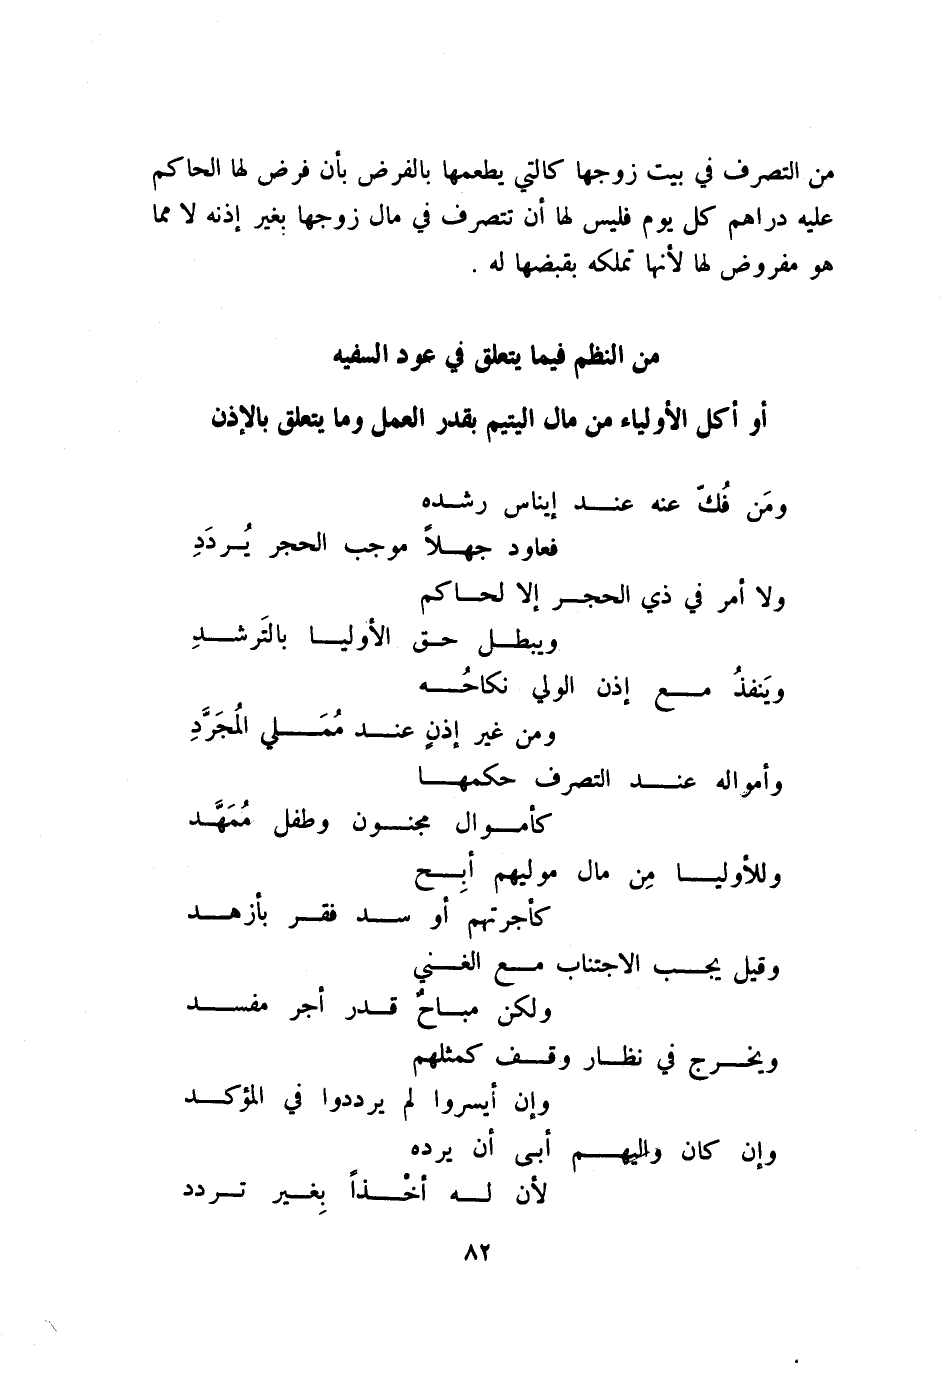 من التصرف في بيت زوجها كالتي يطعمها بالفرض بأن فرض لها الحاكم
عليه دراهم كل يوم فليس لها أن تتصرف في مال زوجها بغير إذنه لا مما
هو مفروض لها لأنها تملكه بقبضها له .
من النظم فيما يتعلق في عود السفيه
أو أكل الأولياء من مال اليتيم بقدر العمل وما يتعلق بالإذن
ومَن فُكّ عنه عند إيناس رشده
فعاود جهلاً موجب الحجر يُردَدِ
ولا أمر في ذي الحجر إلا لحاكم
ويبطل حق الأوليا بالتَرشدِ
ويَنفذُ مع إذن الولي نكاحُه
ومن غير إذنٍ عند مُمَلي المُجَرَّدِ
وأمواله عند التصرف حكمها
كأموال مجنون وطفل مُمَهَّد
وللأوليا مِن مال موليهم أبِح
كأجرتهم أو سد فقر بأزهد
وقيل يجب الاجتناب مع الغني
ولكن مباحٌ قدر أجر مفسد
ويخرج في نظار وقف كمثلهم
وإن أيسروا لم يرددوا في المؤكد
وإن كان واليهم أبى أن يرده
لأن له أخْذاً بِغير تردد
٨٢